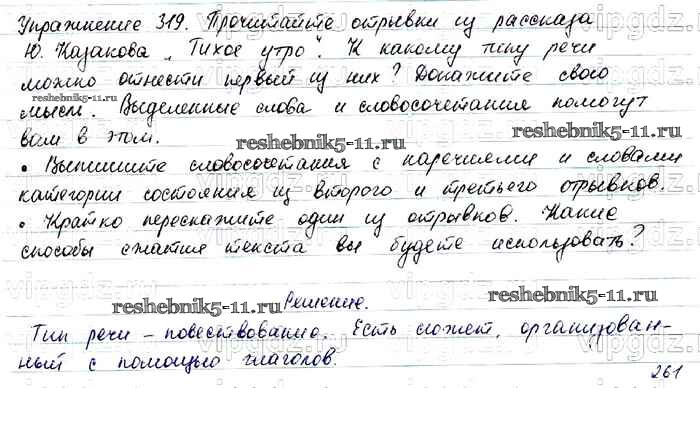 Упражнение 319. Прочитайте отрывки из рассказа
Ю. Казакова „Тихое утро". К какому типу речи
можно отнести первый из них? Докажите свою
мысль. Выделенные слова и словосочетания помогут
вам в этом.
• Выпишите словосочетания с наречиями и словами
категории состояния из второго и третьего отрывков.
• Кратко перескажите один из отрывков. Какие
способы сжатия текста вы будете использовать?
Решение.
Тип речи – повествование. Есть сюжет, организован-
ный с помощью глаголов.
261
reshebnik5-11.ru
reshebnik5-11.ru
reshebnik5-11.ru
reshebnik5-11.ru
reshebnik5-11.ru
vipgdz.ru